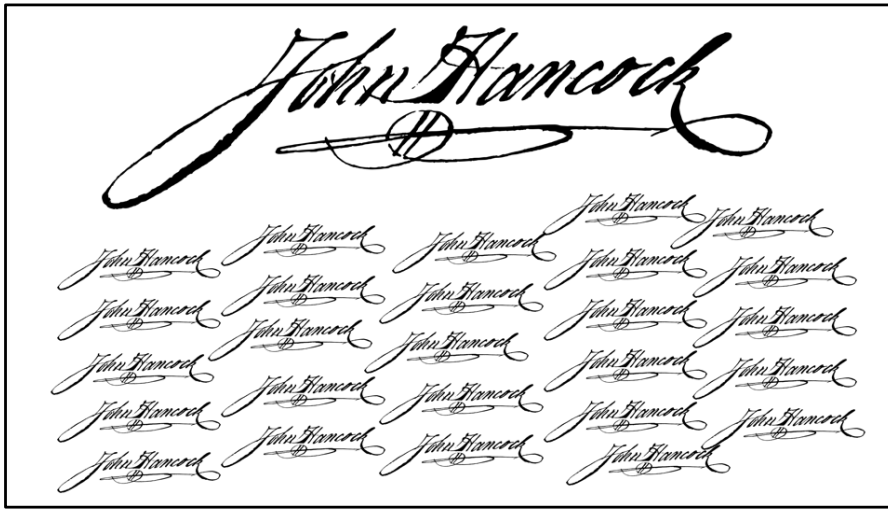 John Hancock
John Hancock John Hancock John Hancock John Hancock John Hancock
John Hancock John Hancock John Hancock John Hancock John Hancock
John Hancock John Hancock John Hancock John Hancock John Hancock
John Hancock John Hancock John Hancock John Hancock John Hancock
John Hancock John Hancock John Hancock John Hancock John Hancock
John Hancock